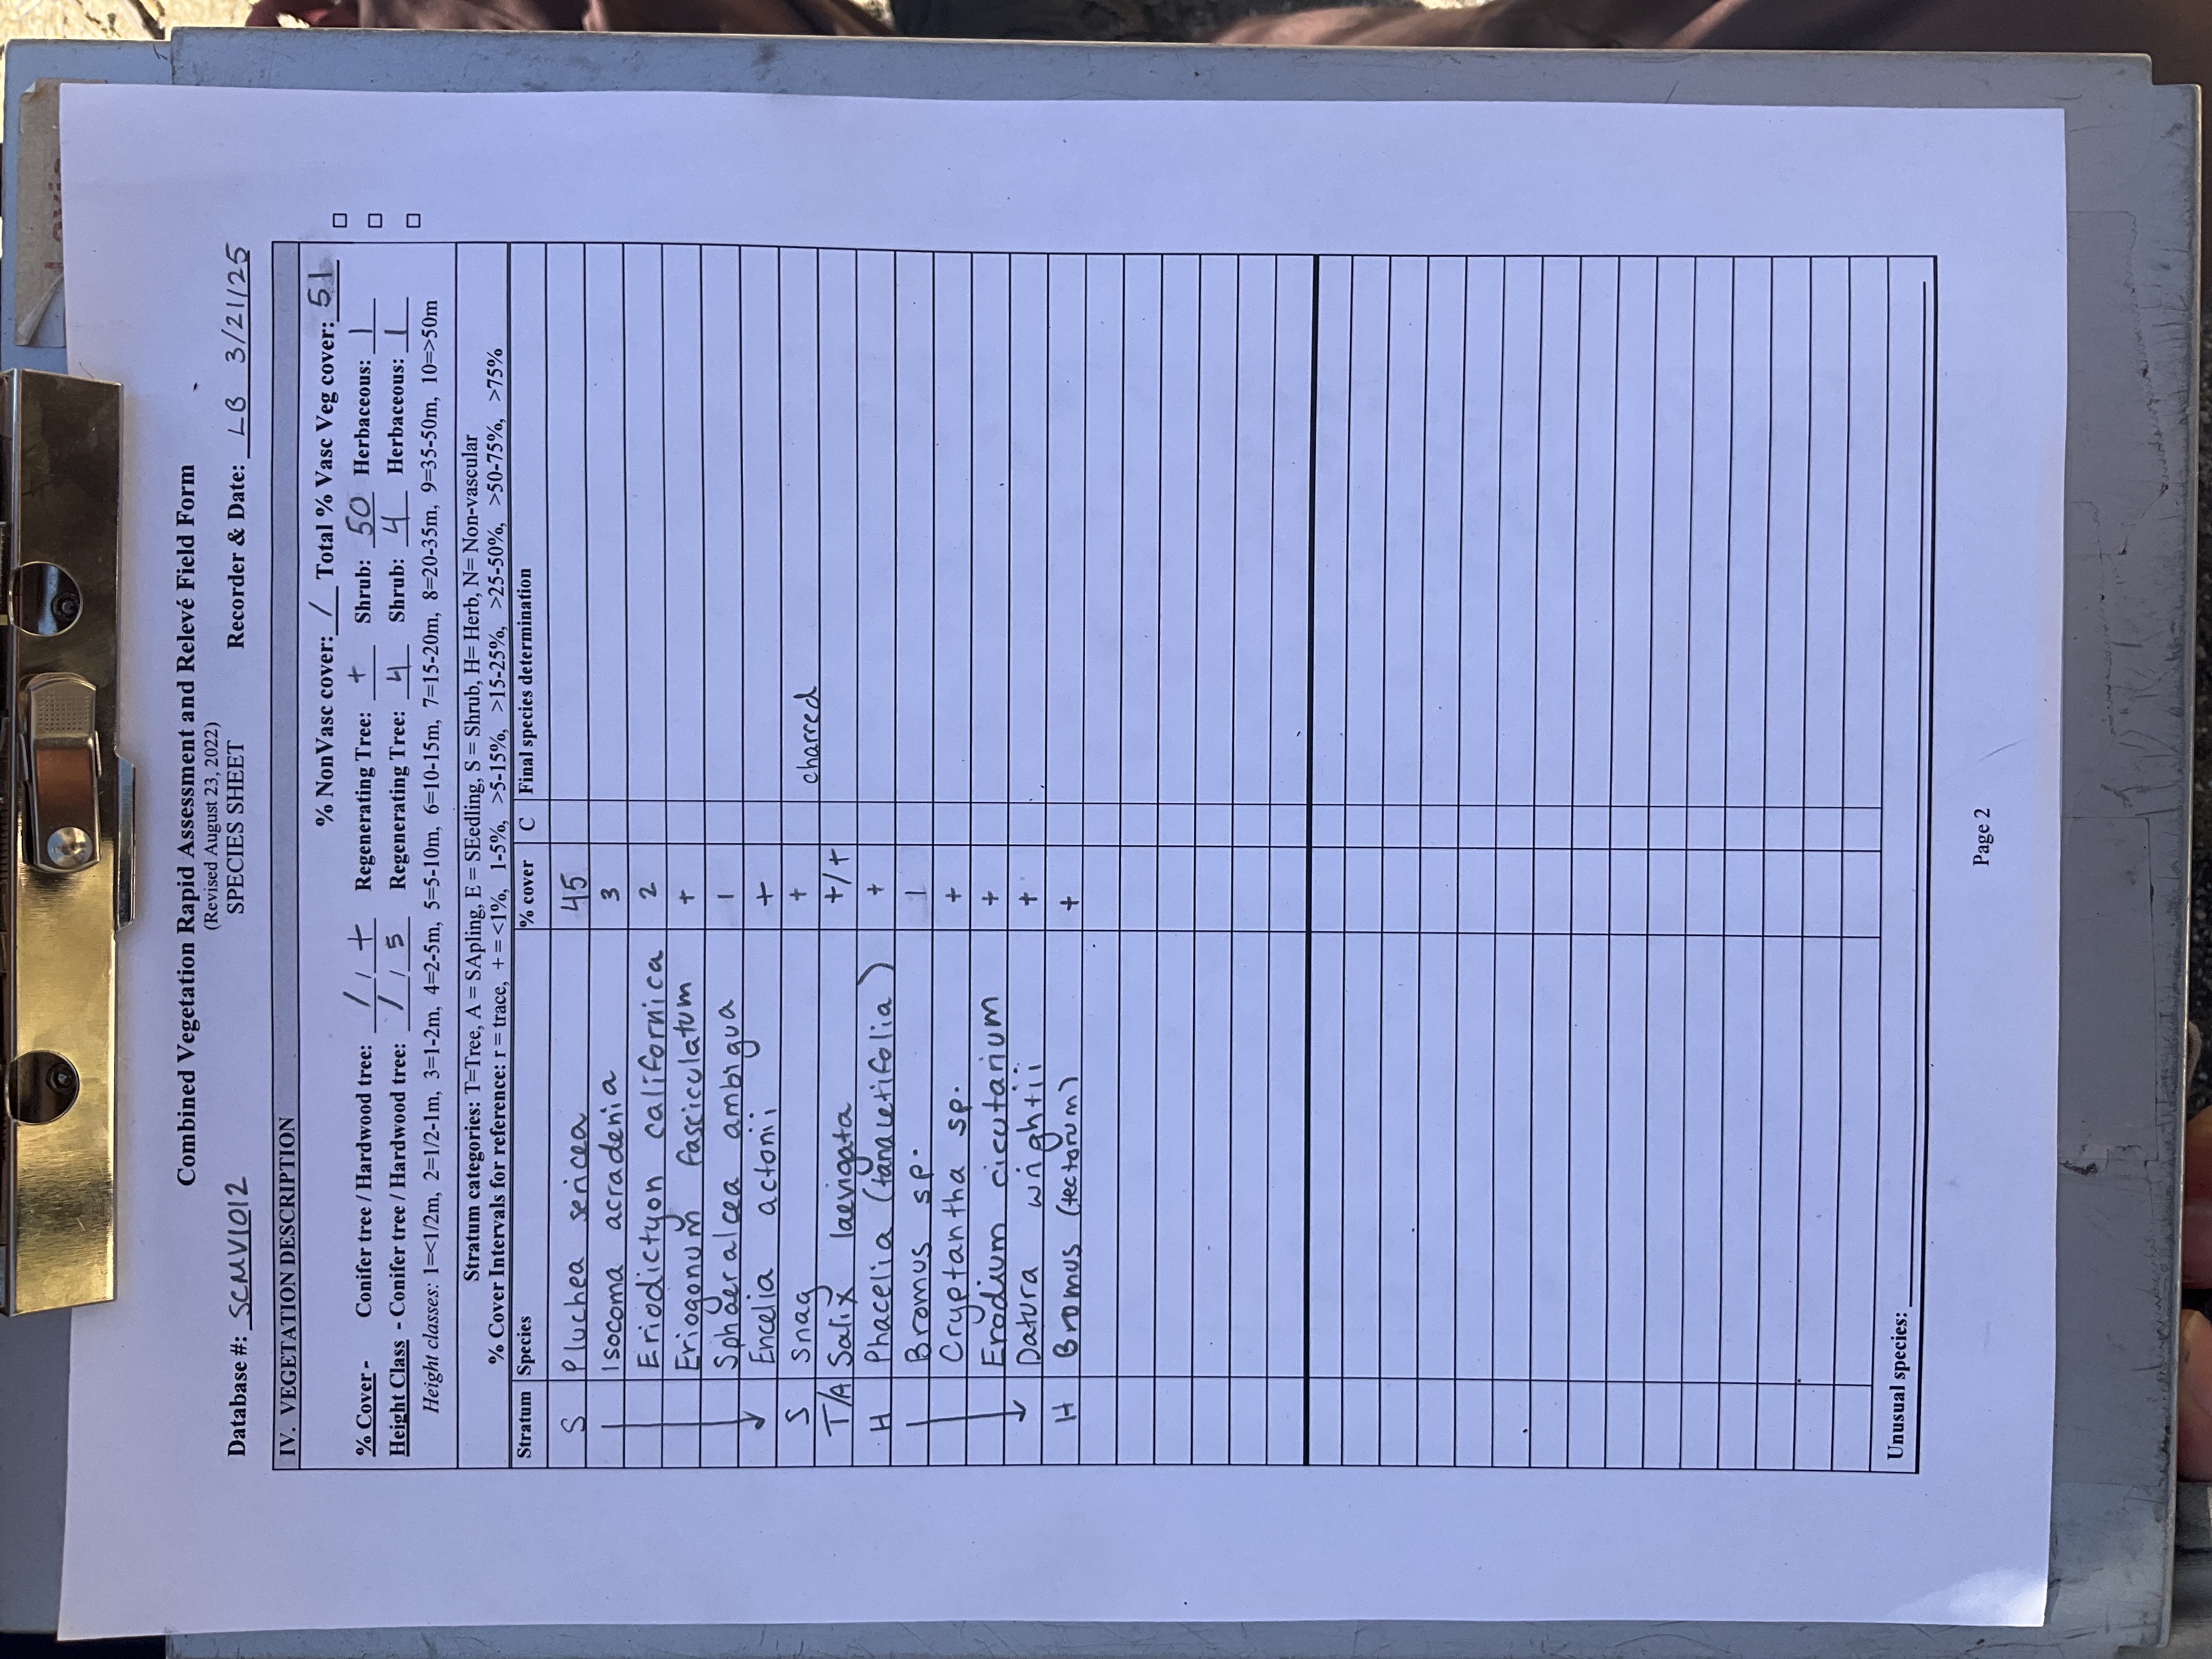 Combined Vegetation Rapid Assessment and Relevé Field Form
(Revised August 23, 2022)
Database #: SCMV1012 SPECIES SHEET Recorder & Date: LB 3/21/25
IV. VEGETATION DESCRIPTION
% NonVasc cover: / Total % Vasc Veg cover: 51
% Cover - Conifer tree / Hardwood tree: / / + Regenerating Tree: + Shrub: 50 Herbaceous: 1
Height Class - Conifer tree / Hardwood tree: / / 5 Regenerating Tree: 4 Shrub: 4 Herbaceous: 1
Height classes: 1=<1/2m, 2=1/2-1m, 3=1-2m, 4=2-5m, 5=5-10m, 6=10-15m, 7=15-20m, 8=20-35m, 9=35-50m, 10=>50m
Stratum categories: T=Tree, A = SApling, E = SEedling, S = Shrub, H= Herb, N= Non-vascular
% Cover Intervals for reference: r = trace, + = <1%, 1-5%, >5-15%, >15-25%, >25-50%, >50-75%, >75%
Stratum Species % cover C Final species determination
S Pluchea sericea 45
Isocoma acradenia 3
Eriodictyon californica 2
Eriogonum fasciculatum +
Sphaeralcea ambigua 1
Encelia actonii +
S Snag + charred
T/A Salix laevigata +/+
H Phacelia (tanacetifolia) +
Bromus sp. 1
Cryptantha sp. +
Erodium cicutarium +
Datura wrightii +
H Bromus (tectorum) +
Unusual species:
Page 2